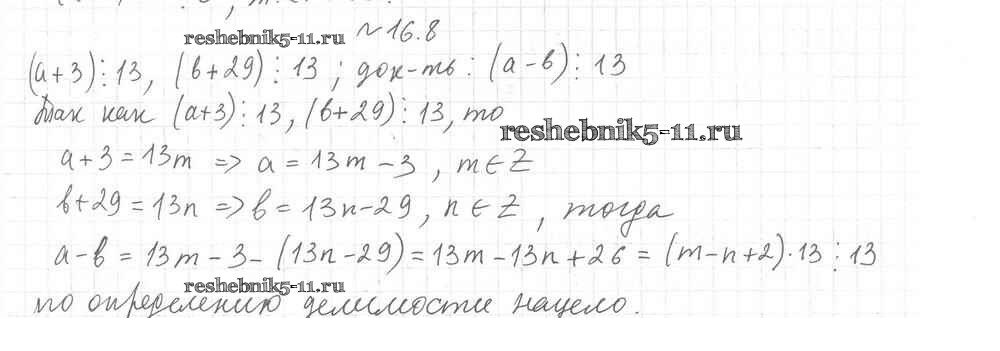 №16.8
reshebnik5-11.ru
(a+3)⋮13, (b+29)⋮13; док-ть: (a-b)⋮13
Так как (a+3)⋮13, (b+29)⋮13, то
reshebnik5-11.ru
a+3=13m => a=13m-3, m∈Z
b+29=13n => b=13n-29, n∈Z, тогда
a-b = 13m-3-(13n-29)=13m-13n+26=(m-n+2)·13⋮13
reshebnik5-11.ru
по определению делимости нацело.